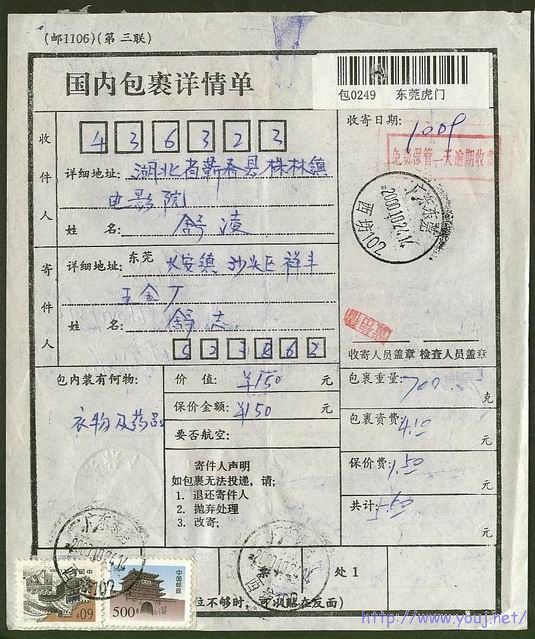 (邮1106)(第三联)
国内包裹详情单
包0249 东莞虎门
收件人
436323
详细地址: 湖北省蕲春县株林镇
电影院
姓名: 舒凌
收寄日期: 1009
免费保管一天逾期收
广东东莞
2000.10.24.14
寄件人
详细地址: 东莞 长安镇 沙头区 祥丰
五金厂
姓名: 舒志
523562
收寄人员盖章 检查人员盖章
包内装有何物:
衣物及药品
价值: ¥150 元
保价金额: ¥150 元
要否航空:
寄件人声明
如包裹无法投递，请;
1. 退还寄件人
2. 抛弃处理
3. 改寄:
包裹重量: 700 克
包裹资费: 4.10 元
保价费: 1.50 元
共计: 5.60 元
处1
位不够时，可训贴在反面)
60
中国邮政
500分
http://www.youj.net/